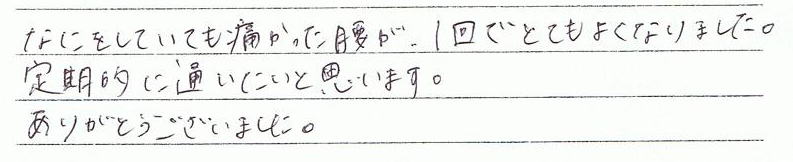 なにをしていても痛かった腰が、1回でとてもよくなりました。
定期的に通いたいと思います。
ありがとうございました。